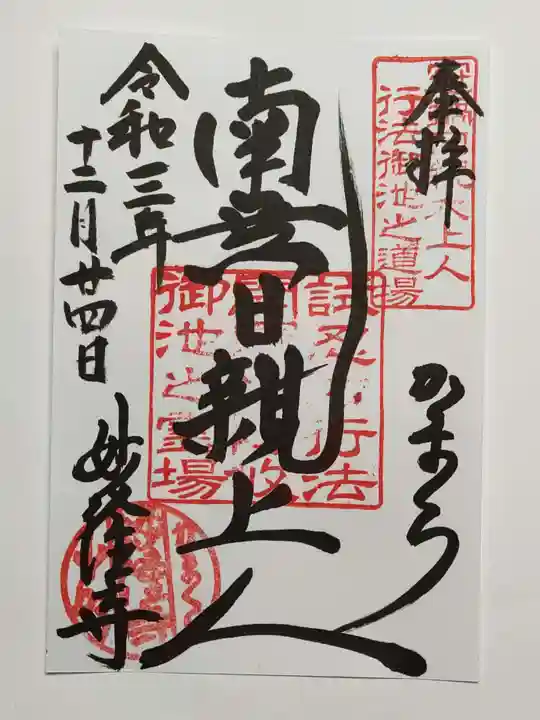 奉拝
行法御池之道場
かまくら
南無日親上人
試忍之行法
御池之霊場
令和三年
十二月廿四日
妙隆寺